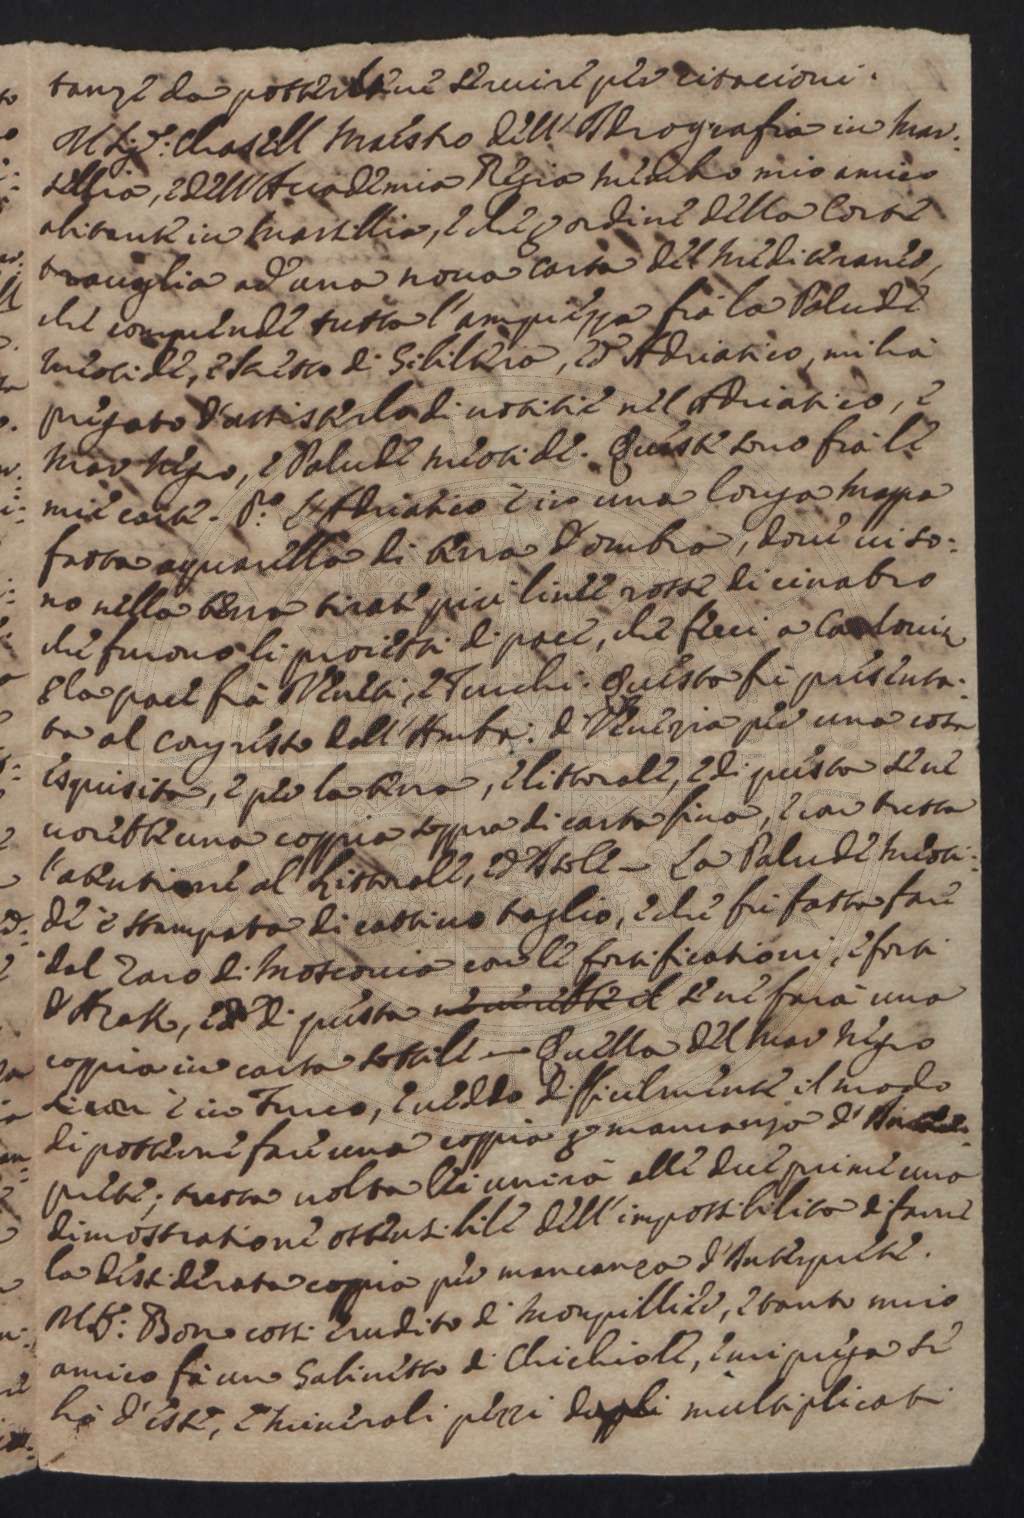 tanze da potterlene servire per citacioni.
M.gr: Chasell Maestro dell'Idrografia in Mar:
sellia, e dell'Accademia Regia membro mio amico
abitante in Marsillia, e che per ordine della Corte
travaglia ad una nova carta del Mediteraneo,
che comprende tutta l'ampiezza frà la Palude
Meotide, e stretto di Gibilterra, ed Adriatico, mi hà
pregato d'assisterlo di notitie nel Adriatico, e
Mar Negro, e Palude Meotide. Queste sono frà le
mie carte. P.o L'Adriatico è in una longa mappa
fatta aquarella di terra d'ombra, dove vi so:
no nella terra tirate più linee rosse di cinabro
che furono li proietti di pace, che feci a Carlowiz
per la pace frà Veneti, e Turchi. Questa fù presenta:
ta al Congresso dall'Amba: di Venezia per una cosa
esquisita, e per la terra, e littorale, e di questa se ne
vorebbe una coppia soppra di carta fina, e con tutta
l'atentione al Littorale, ed Isole – La Palude Meoti:
de è stampata di cattivo taglio, e che fù fatta fare
dal Zaro di Moscovia con le fortificationi, e forti
d'Azak, ed di questa se ne farà una
coppia in carta sottile – Quella del Mar Negro
è in Turco, e vedo difficilmente il modo
di potterne fare una coppia per mancanza d'
prete; tutta volta lei unirà alle due prime una
dimostratione ostensibile dell'impossibilità di farne
la desiderata coppia per mancanza d'Interprete.
M.r: Bon costi erudito di Monpillier, e tanto mio
amico fà un Gabinetto di Chichiole, e mi prega se
hò d'esse, e Minerali pezzi dupli multiplicati